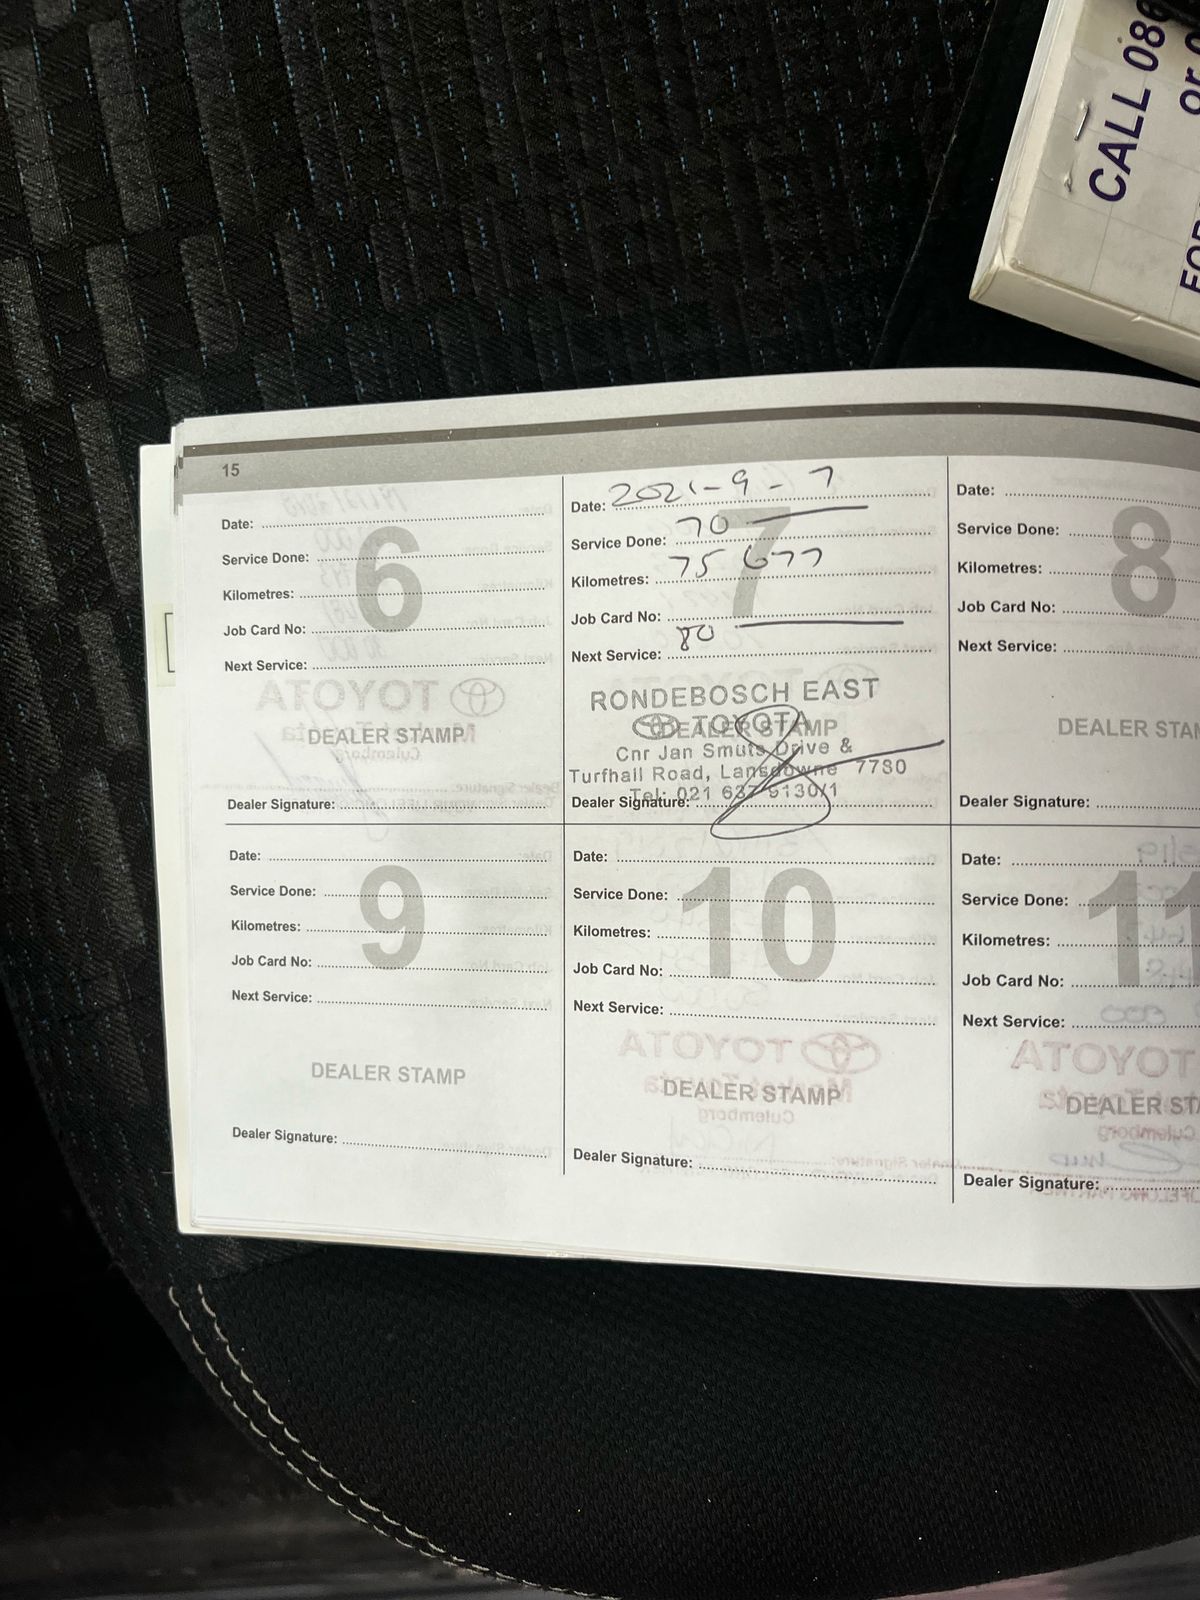 CALL 086
or 0
FOR
15
6
Date:
Service Done:
Kilometres:
Job Card No:
Next Service:
DEALER STAMP
Dealer Signature:
7
Date: 2021-9-7
Service Done: 70
Kilometres: 75 677
Job Card No:
Next Service: 80
RONDEBOSCH EAST
TOYOTA
DEALER STAMP
Cnr Jan Smuts Drive &
Turfhall Road, Lansdowne 7780
Tel: 021 637 9130/1
Dealer Signature:
8
Date:
Service Done:
Kilometres:
Job Card No:
Next Service:
DEALER STAM
Dealer Signature:
9
Date:
Service Done:
Kilometres:
Job Card No:
Next Service:
DEALER STAMP
Dealer Signature:
10
Date:
Service Done:
Kilometres:
Job Card No:
Next Service:
DEALER STAMP
Dealer Signature:
11
Date:
Service Done:
Kilometres:
Job Card No:
Next Service:
DEALER STA
Dealer Signature: